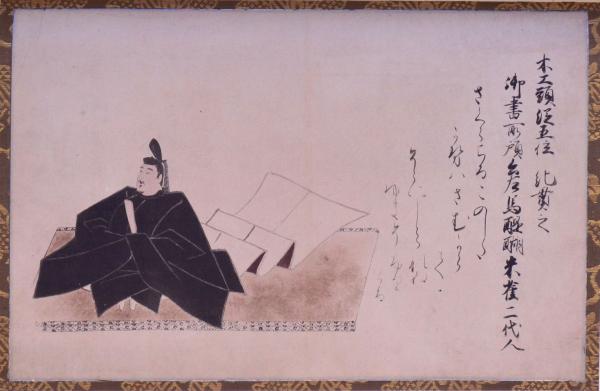 木工頭従五位 紀貫之
御書所預 醍醐朱雀二代人
さくらちるこのした
かせハさむから
て
そらにしられぬ
ゆきそふりける